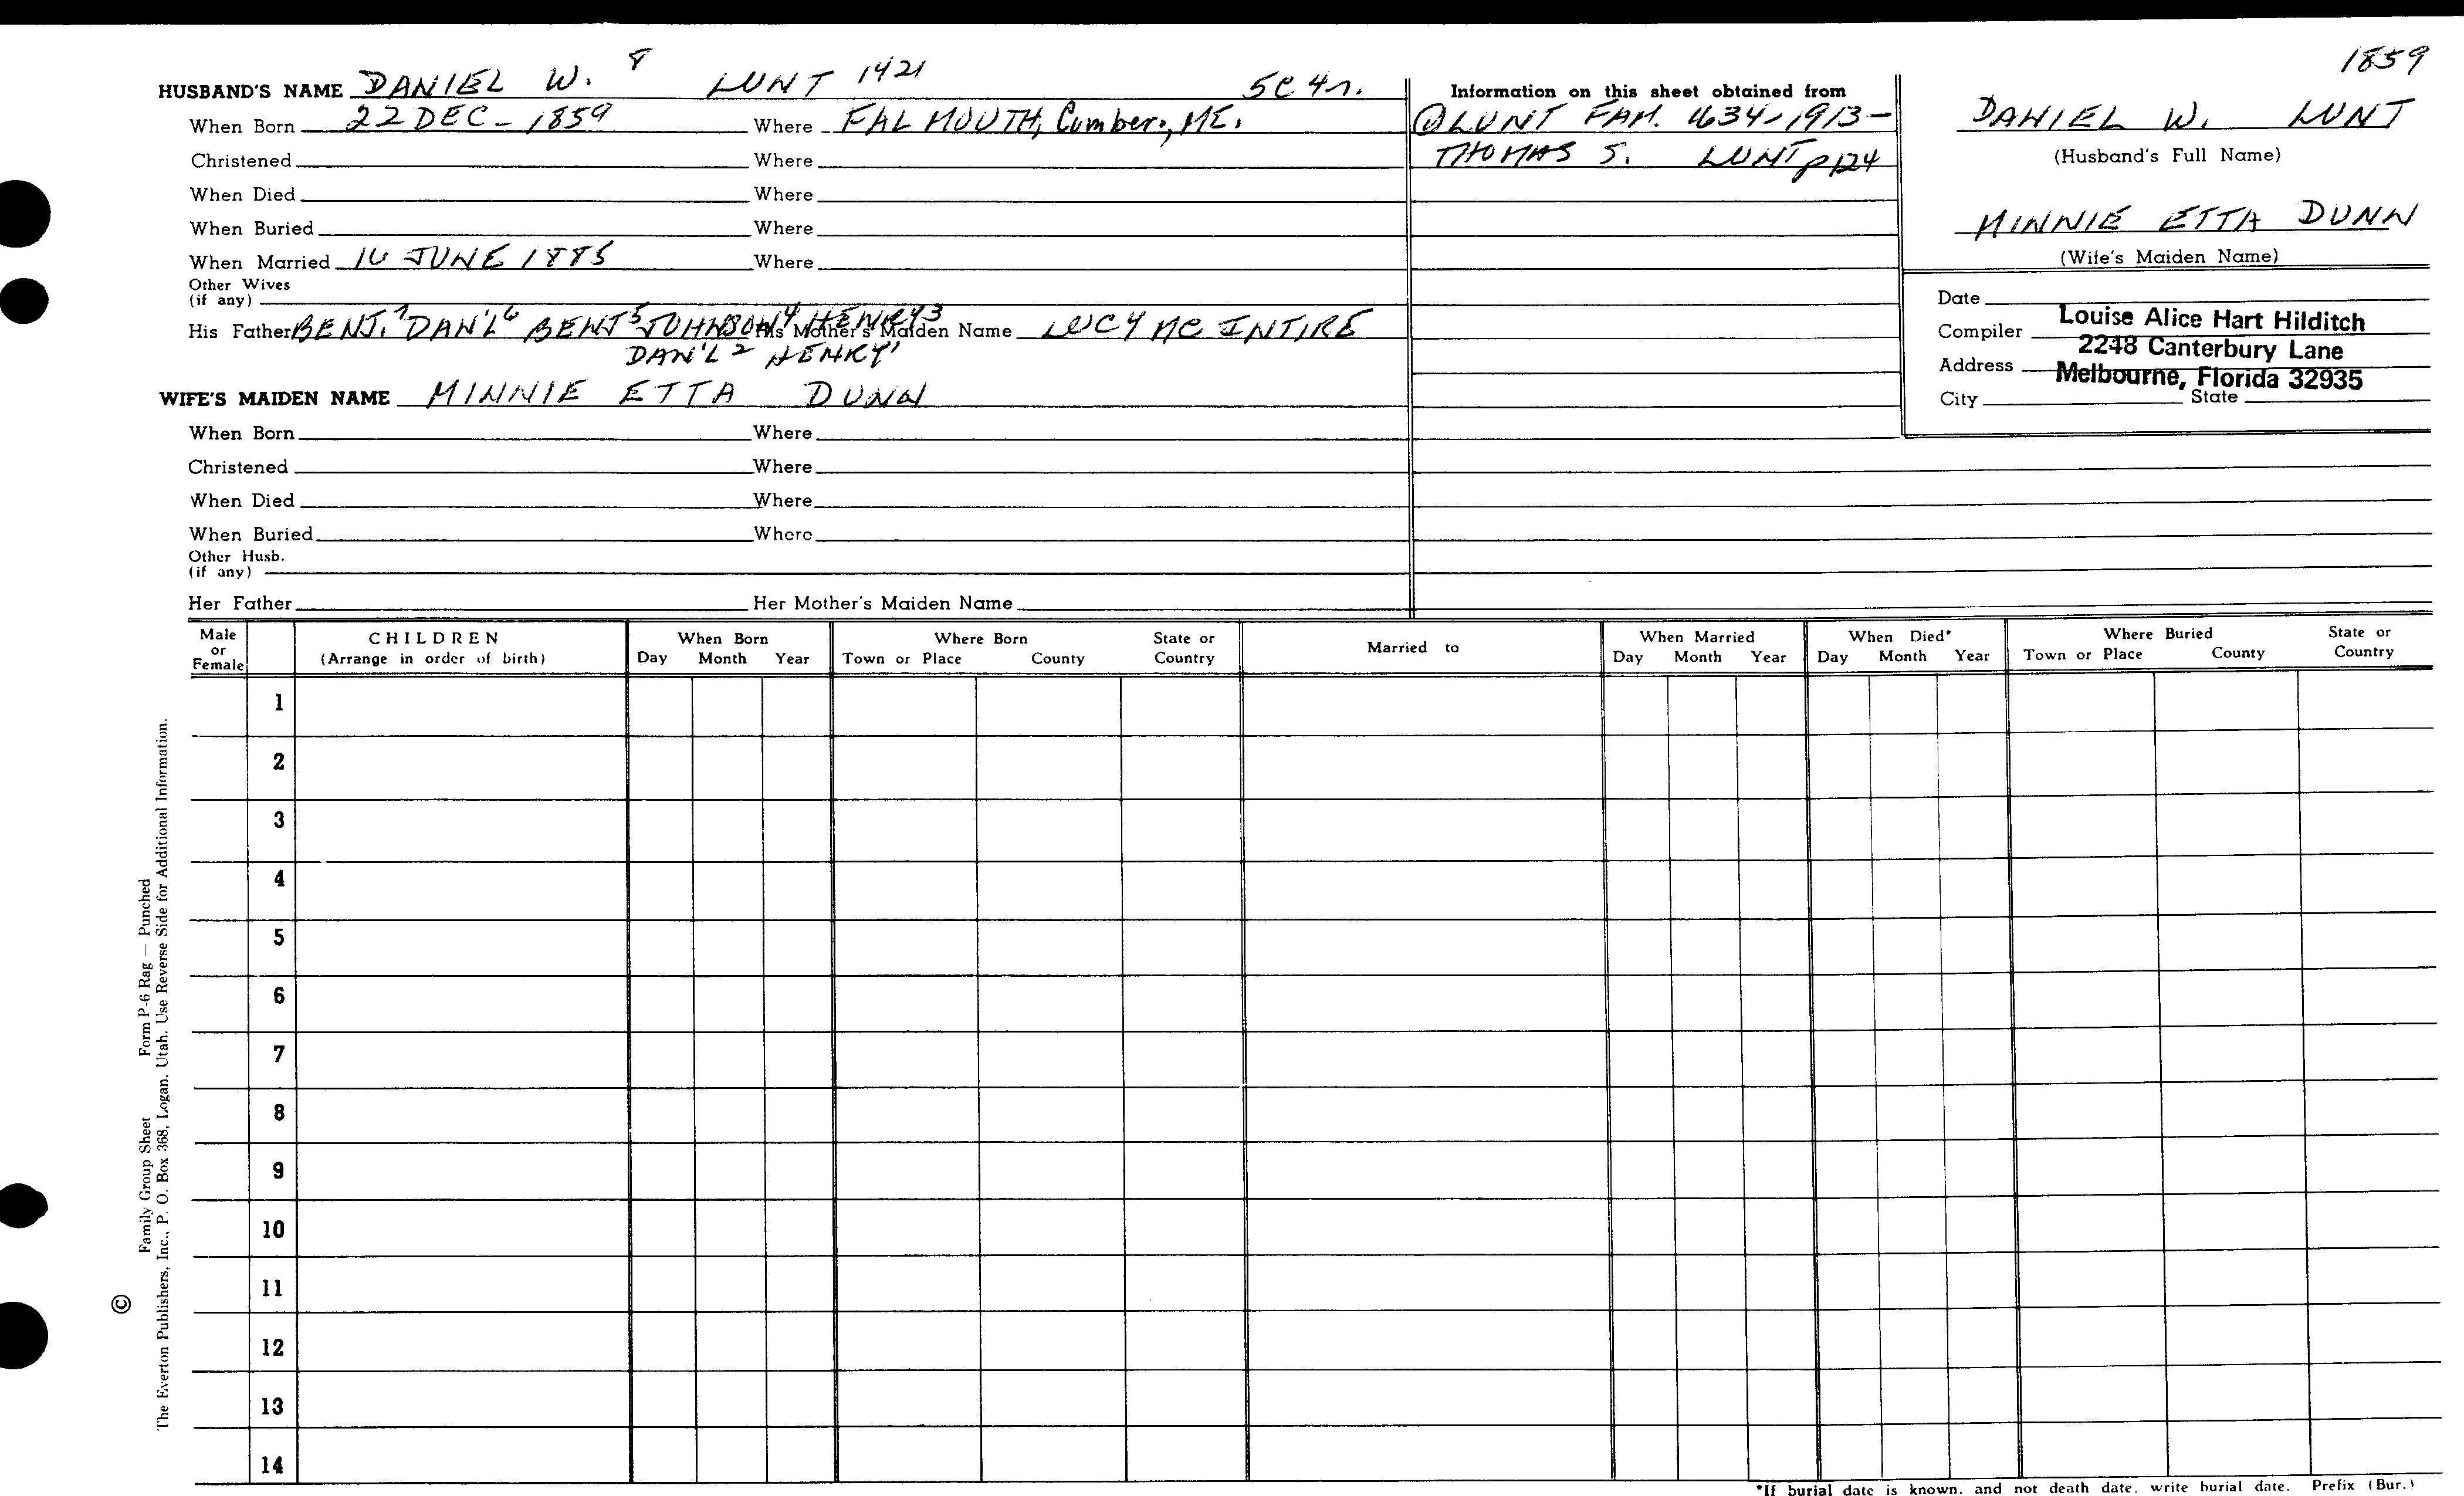 1859
HUSBAND'S NAME DANIEL W. 8 LUNT 1421 5C 4r.
When Born 22 DEC - 1859 Where FALMOUTH, Cumber., ME.
Christened Where
When Died Where
When Buried Where
When Married 16 JUNE 1885 Where
Other Wives
(if any)
His Father BENJ.7 DAN'L6 BENJ5 JOHNSON4 HENRY3 His Mother's Maiden Name LUCY MC INTIRE
DAN'L2 HENRY1
WIFE'S MAIDEN NAME MINNIE ETTA DUNN
When Born Where
Christened Where
When Died Where
When Buried Where
Other Husb.
(if any)
Her Father Her Mother's Maiden Name
Information on this sheet obtained from
@LUNT FAM. 1634-1913-
THOMAS S. LUNT p124
DANIEL W. LUNT
(Husband's Full Name)
MINNIE ETTA DUNN
(Wife's Maiden Name)
Date
Compiler Louise Alice Hart Hilditch
Address 2248 Canterbury Lane
Melbourne, Florida 32935
City State
Male or Female CHILDREN (Arrange in order of birth) When Born Day Month Year Where Born Town or Place County State or Country Married to When Married Day Month Year When Died* Day Month Year Where Buried Town or Place County State or Country
1
2
3
4
5
6
7
8
9
10
11
12
13
14
*If burial date is known, and not death date, write burial date. Prefix (Bur.)
Family Group Sheet Form P-6 Rag — Punched
© The Everton Publishers, Inc., P. O. Box 368, Logan, Utah. Use Reverse Side for Additional Information.